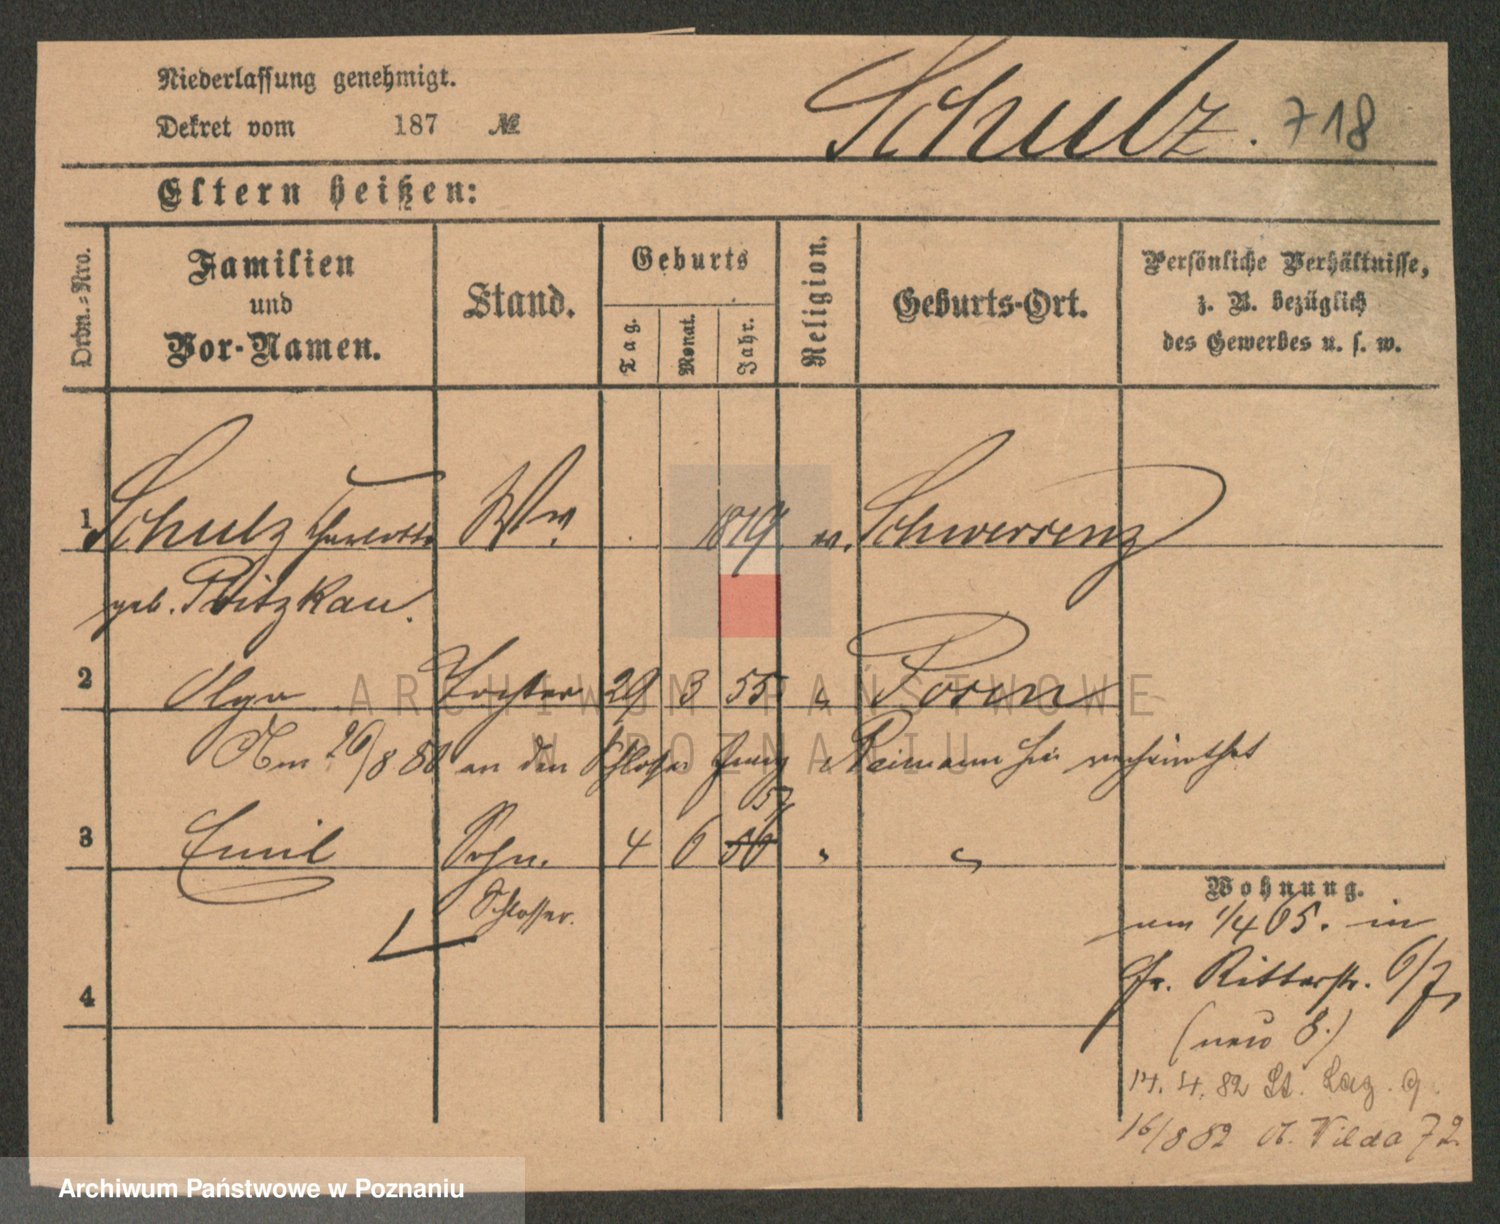 Niederlassung genehmigt.
Schulz. 718
Dekret vom 187 №
Eltern heißen:
Ordn.-Nro.
Familien und Vor-Namen.
Stand.
Geburts
Tag.
Monat.
Jahr.
Religion.
Geburts-Ort.
Persönliche Verhältnisse, z. B. bezüglich des Gewerbes u. s. w.
1 Schulz Charlotte Ww. 1819 ev. Schwersenz
geb. Pritzkau.
2 Olga Tochter 29 3 55 " Posen
Am 26/8 80 an den Schlosser Reimann hier verheirathet
57
3 Emil Sohn. 4 6 56 " "
Schlosser.
4
Wohnung.
um 1/4 65. in
Gr. Ritterstr. 6/7,
(neu 8.)
14. 4. 82 St. Laz. 9.
16/8 82 O. Wilda 72
ARCHIWUM PAŃSTWOWE
W POZNANIU
Archiwum Państwowe w Poznaniu